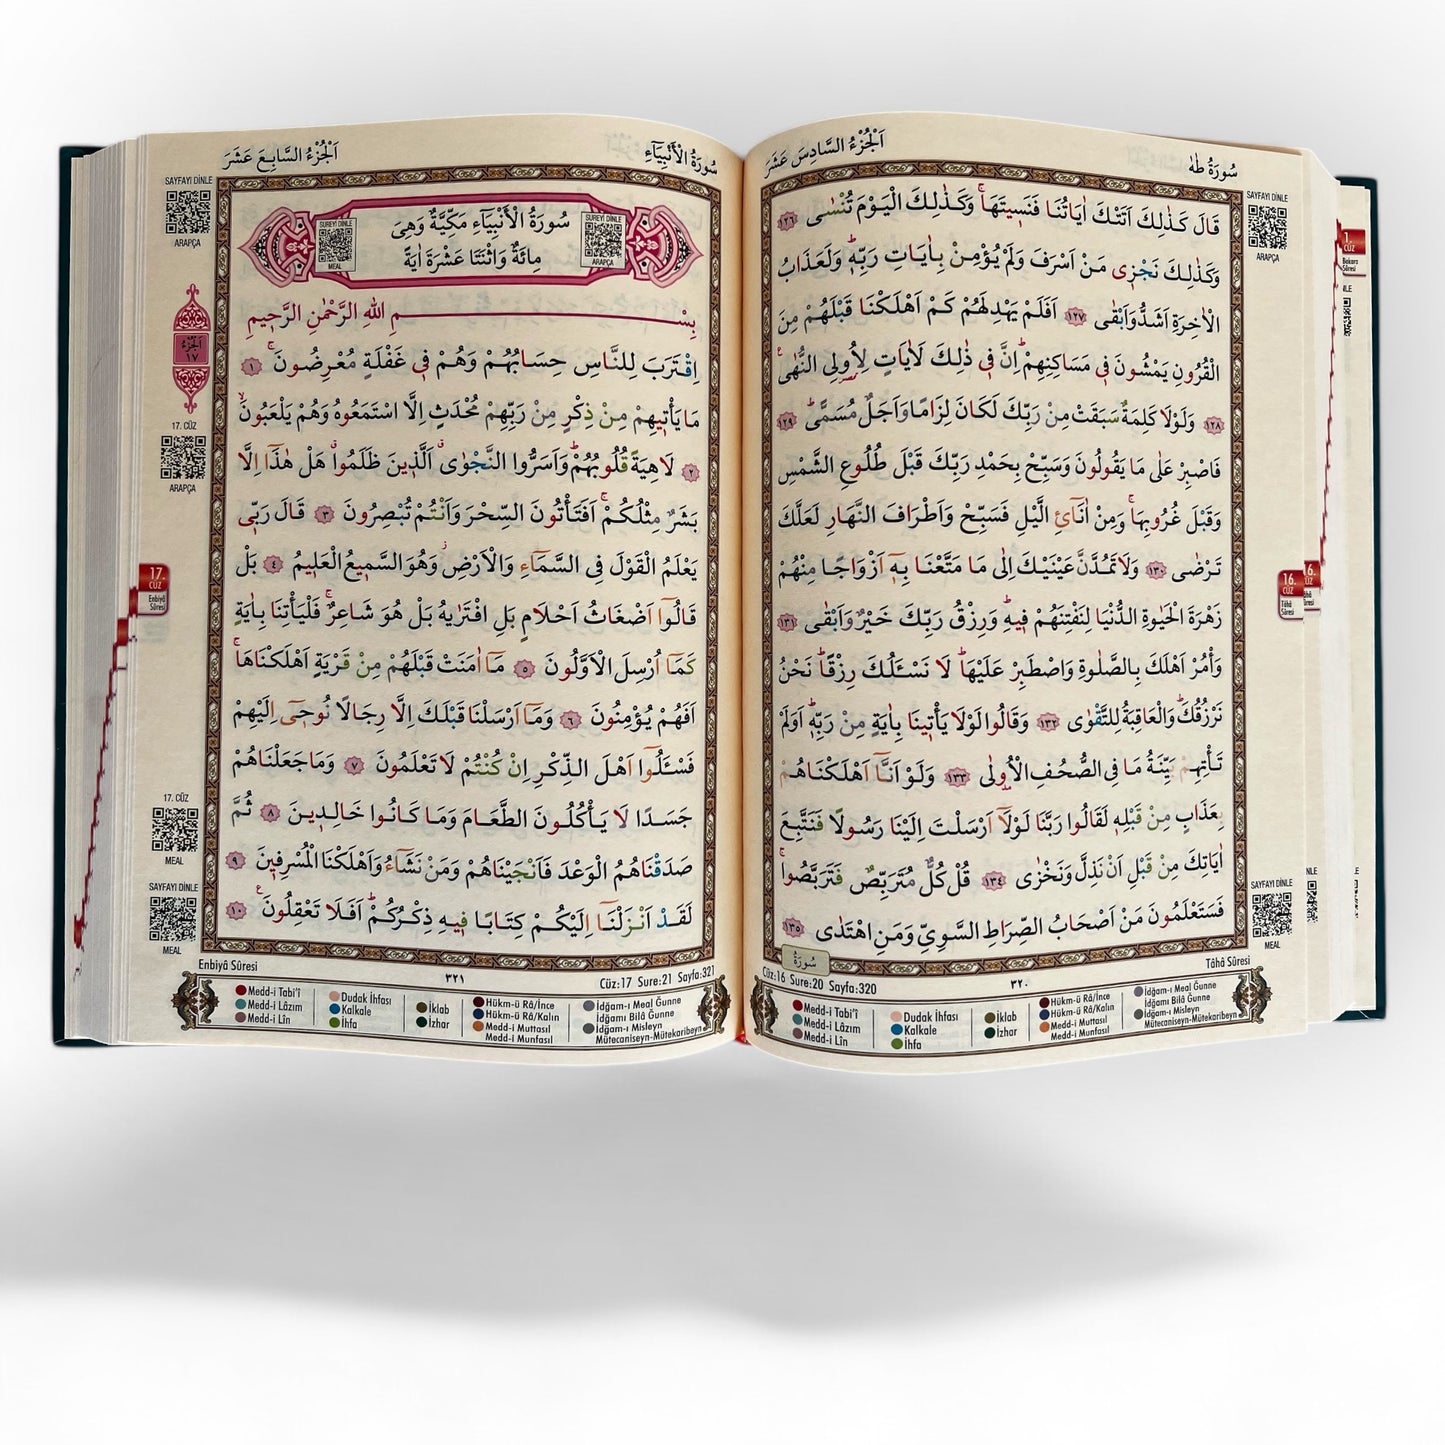 سُورَةُ طٰهٰ
اَلْجُزْءُ السَّادِسَ عَشَرَ
SAYFAYI DİNLE
ARAPÇA
قَالَ كَذٰلِكَ اَتَتْكَ اٰيَاتُنَا فَنَسٖيتَهَاۚ وَكَذٰلِكَ الْيَوْمَ تُنْسٰى ﴿١٢٦﴾
وَكَذٰلِكَ نَجْزٖى مَنْ اَسْرَفَ وَلَمْ يُؤْمِنْ بِاٰيَاتِ رَبِّهٖؕ وَلَعَذَابُ
الْاٰخِرَةِ اَشَدُّ وَاَبْقٰى ﴿١٢٧﴾ اَفَلَمْ يَهْدِ لَهُمْ كَمْ اَهْلَكْنَا قَبْلَهُمْ مِنَ
الْقُرُونِ يَمْشُونَ فٖى مَسَاكِنِهِمْؕ اِنَّ فٖى ذٰلِكَ لَاٰيَاتٍ لِاُولِى النُّهٰىۚ
﴿١٢٨﴾ وَلَوْلَا كَلِمَةٌ سَبَقَتْ مِنْ رَبِّكَ لَكَانَ لِزَامًا وَاَجَلٌ مُسَمًّىؕ ﴿١٢٩﴾
فَاصْبِرْ عَلٰى مَا يَقُولُونَ وَسَبِّحْ بِحَمْدِ رَبِّكَ قَبْلَ طُلُوعِ الشَّمْسِ
وَقَبْلَ غُرُوبِهَاۚ وَمِنْ اٰنَآئِ الَّيْلِ فَسَبِّحْ وَاَطْرَافَ النَّهَارِ لَعَلَّكَ
تَرْضٰى ﴿١٣٠﴾ وَلَا تَمُدَّنَّ عَيْنَيْكَ اِلٰى مَا مَتَّعْنَا بِهٖٓ اَزْوَاجًا مِنْهُمْ
زَهْرَةَ الْحَيٰوةِ الدُّنْيَا لِنَفْتِنَهُمْ فٖيهِؕ وَرِزْقُ رَبِّكَ خَيْرٌ وَاَبْقٰى ﴿١٣١﴾
وَأْمُرْ اَهْلَكَ بِالصَّلٰوةِ وَاصْطَبِرْ عَلَيْهَاؕ لَا نَسْـَٔلُكَ رِزْقًاؕ نَحْنُ
نَرْزُقُكَؕ وَالْعَاقِبَةُ لِلتَّقْوٰى ﴿١٣٢﴾ وَقَالُوا لَوْلَا يَأْتٖينَا بِاٰيَةٍ مِنْ رَبِّهٖؕ اَوَلَمْ
تَأْتِهِمْ بَيِّنَةُ مَا فِى الصُّحُفِ الْاُولٰى ﴿١٣٣﴾ وَلَوْ اَنَّٓا اَهْلَكْنَاهُمْ
بِعَذَابٍ مِنْ قَبْلِهٖ لَقَالُوا رَبَّنَا لَوْلَٓا اَرْسَلْتَ اِلَيْنَا رَسُولًا فَنَتَّبِعَ
اٰيَاتِكَ مِنْ قَبْلِ اَنْ نَذِلَّ وَنَخْزٰى ﴿١٣٤﴾ قُلْ كُلٌّ مُتَرَبِّصٌ فَتَرَبَّصُواۚ
فَسَتَعْلَمُونَ مَنْ اَصْحَابُ الصِّرَاطِ السَّوِىِّ وَمَنِ اهْتَدٰى ﴿١٣٥﴾
سُورَةُ
SAYFAYI DİNLE
MEAL
Cüz:16 Sure:20 Sayfa:320
٣٢٠
Tâhâ Sûresi
Medd-i Tabi'î
Medd-i Lâzım
Medd-i Lîn
Dudak İhfası
Kalkale
İhfa
İklab
İzhar
Hükm-ü Râ/İnce
Hükm-ü Râ/Kalın
Medd-i Muttasıl
Medd-i Munfasıl
İdğam-ı Meal Ğunne
İdğamı Bilâ Ğunne
İdğam-ı Misleyn
Mütecaniseyn-Mütekaribeyn
1.
CÜZ
Bakara
Sûresi
16.
CÜZ
Tâhâ
Sûresi
سُورَةُ الْاَنْبِيَٓاءِ
اَلْجُزْءُ السَّابِعَ عَشَرَ
SAYFAYI DİNLE
ARAPÇA
SUREYİ DİNLE
ARAPÇA
SUREYİ DİNLE
MEAL
سُورَةُ الْاَنْبِيَٓاءِ مَكِّيَّةٌ وَهِىَ
مِائَةٌ وَاثْنَتَا عَشْرَةَ اٰيَةً
بِسْمِ اللهِ الرَّحْمٰنِ الرَّحٖيمِ
اِقْتَرَبَ لِلنَّاسِ حِسَابُهُمْ وَهُمْ فٖى غَفْلَةٍ مُعْرِضُونَۚ ﴿١﴾
مَا يَأْتٖيهِمْ مِنْ ذِكْرٍ مِنْ رَبِّهِمْ مُحْدَثٍ اِلَّا اسْتَمَعُوهُ وَهُمْ يَلْعَبُونَۙ
﴿٢﴾ لَاهِيَةً قُلُوبُهُمْؕ وَاَسَرُّوا النَّجْوٰىۗ اَلَّذٖينَ ظَلَمُواۗ هَلْ هٰذَٓا اِلَّا
بَشَرٌ مِثْلُكُمْۚ اَفَتَأْتُونَ السِّحْرَ وَاَنْتُمْ تُبْصِرُونَ ﴿٣﴾ قَالَ رَبّٖى
يَعْلَمُ الْقَوْلَ فِى السَّمَٓاءِ وَالْاَرْضِؗ وَهُوَ السَّمٖيعُ الْعَلٖيمُ ﴿٤﴾ بَلْ
قَالُٓوا اَضْغَاثُ اَحْلَامٍ بَلِ افْتَرٰيهُ بَلْ هُوَ شَاعِرٌۚ فَلْيَأْتِنَا بِاٰيَةٍ
كَمَٓا اُرْسِلَ الْاَوَّلُونَ ﴿٥﴾ مَٓا اٰمَنَتْ قَبْلَهُمْ مِنْ قَرْيَةٍ اَهْلَكْنَاهَاۚ
اَفَهُمْ يُؤْمِنُونَ ﴿٦﴾ وَمَٓا اَرْسَلْنَا قَبْلَكَ اِلَّا رِجَالًا نُوحٖٓى اِلَيْهِمْ
فَسْـَٔلُٓوا اَهْلَ الذِّكْرِ اِنْ كُنْتُمْ لَا تَعْلَمُونَ ﴿٧﴾ وَمَا جَعَلْنَاهُمْ
جَسَدًا لَا يَأْكُلُونَ الطَّعَامَ وَمَا كَانُوا خَالِدٖينَ ﴿٨﴾ ثُمَّ
صَدَقْنَاهُمُ الْوَعْدَ فَاَنْجَيْنَاهُمْ وَمَنْ نَشَٓاءُ وَاَهْلَكْنَا الْمُسْرِفٖينَ ﴿٩﴾
لَقَدْ اَنْزَلْنَٓا اِلَيْكُمْ كِتَابًا فٖيهِ ذِكْرُكُمْؕ اَفَلَا تَعْقِلُونَࣖ ﴿١٠﴾
اَلْجُزْءُ
١٧
17. CÜZ
ARAPÇA
17.
CÜZ
Enbiyâ
Sûresi
17. CÜZ
MEAL
SAYFAYI DİNLE
MEAL
Enbiyâ Sûresi
٣٢١
Cüz:17 Sure:21 Sayfa:321
Medd-i Tabi'î
Medd-i Lâzım
Medd-i Lîn
Dudak İhfası
Kalkale
İhfa
İklab
İzhar
Hükm-ü Râ/İnce
Hükm-ü Râ/Kalın
Medd-i Muttasıl
Medd-i Munfasıl
İdğam-ı Meal Ğunne
İdğamı Bilâ Ğunne
İdğam-ı Misleyn
Mütecaniseyn-Mütekaribeyn